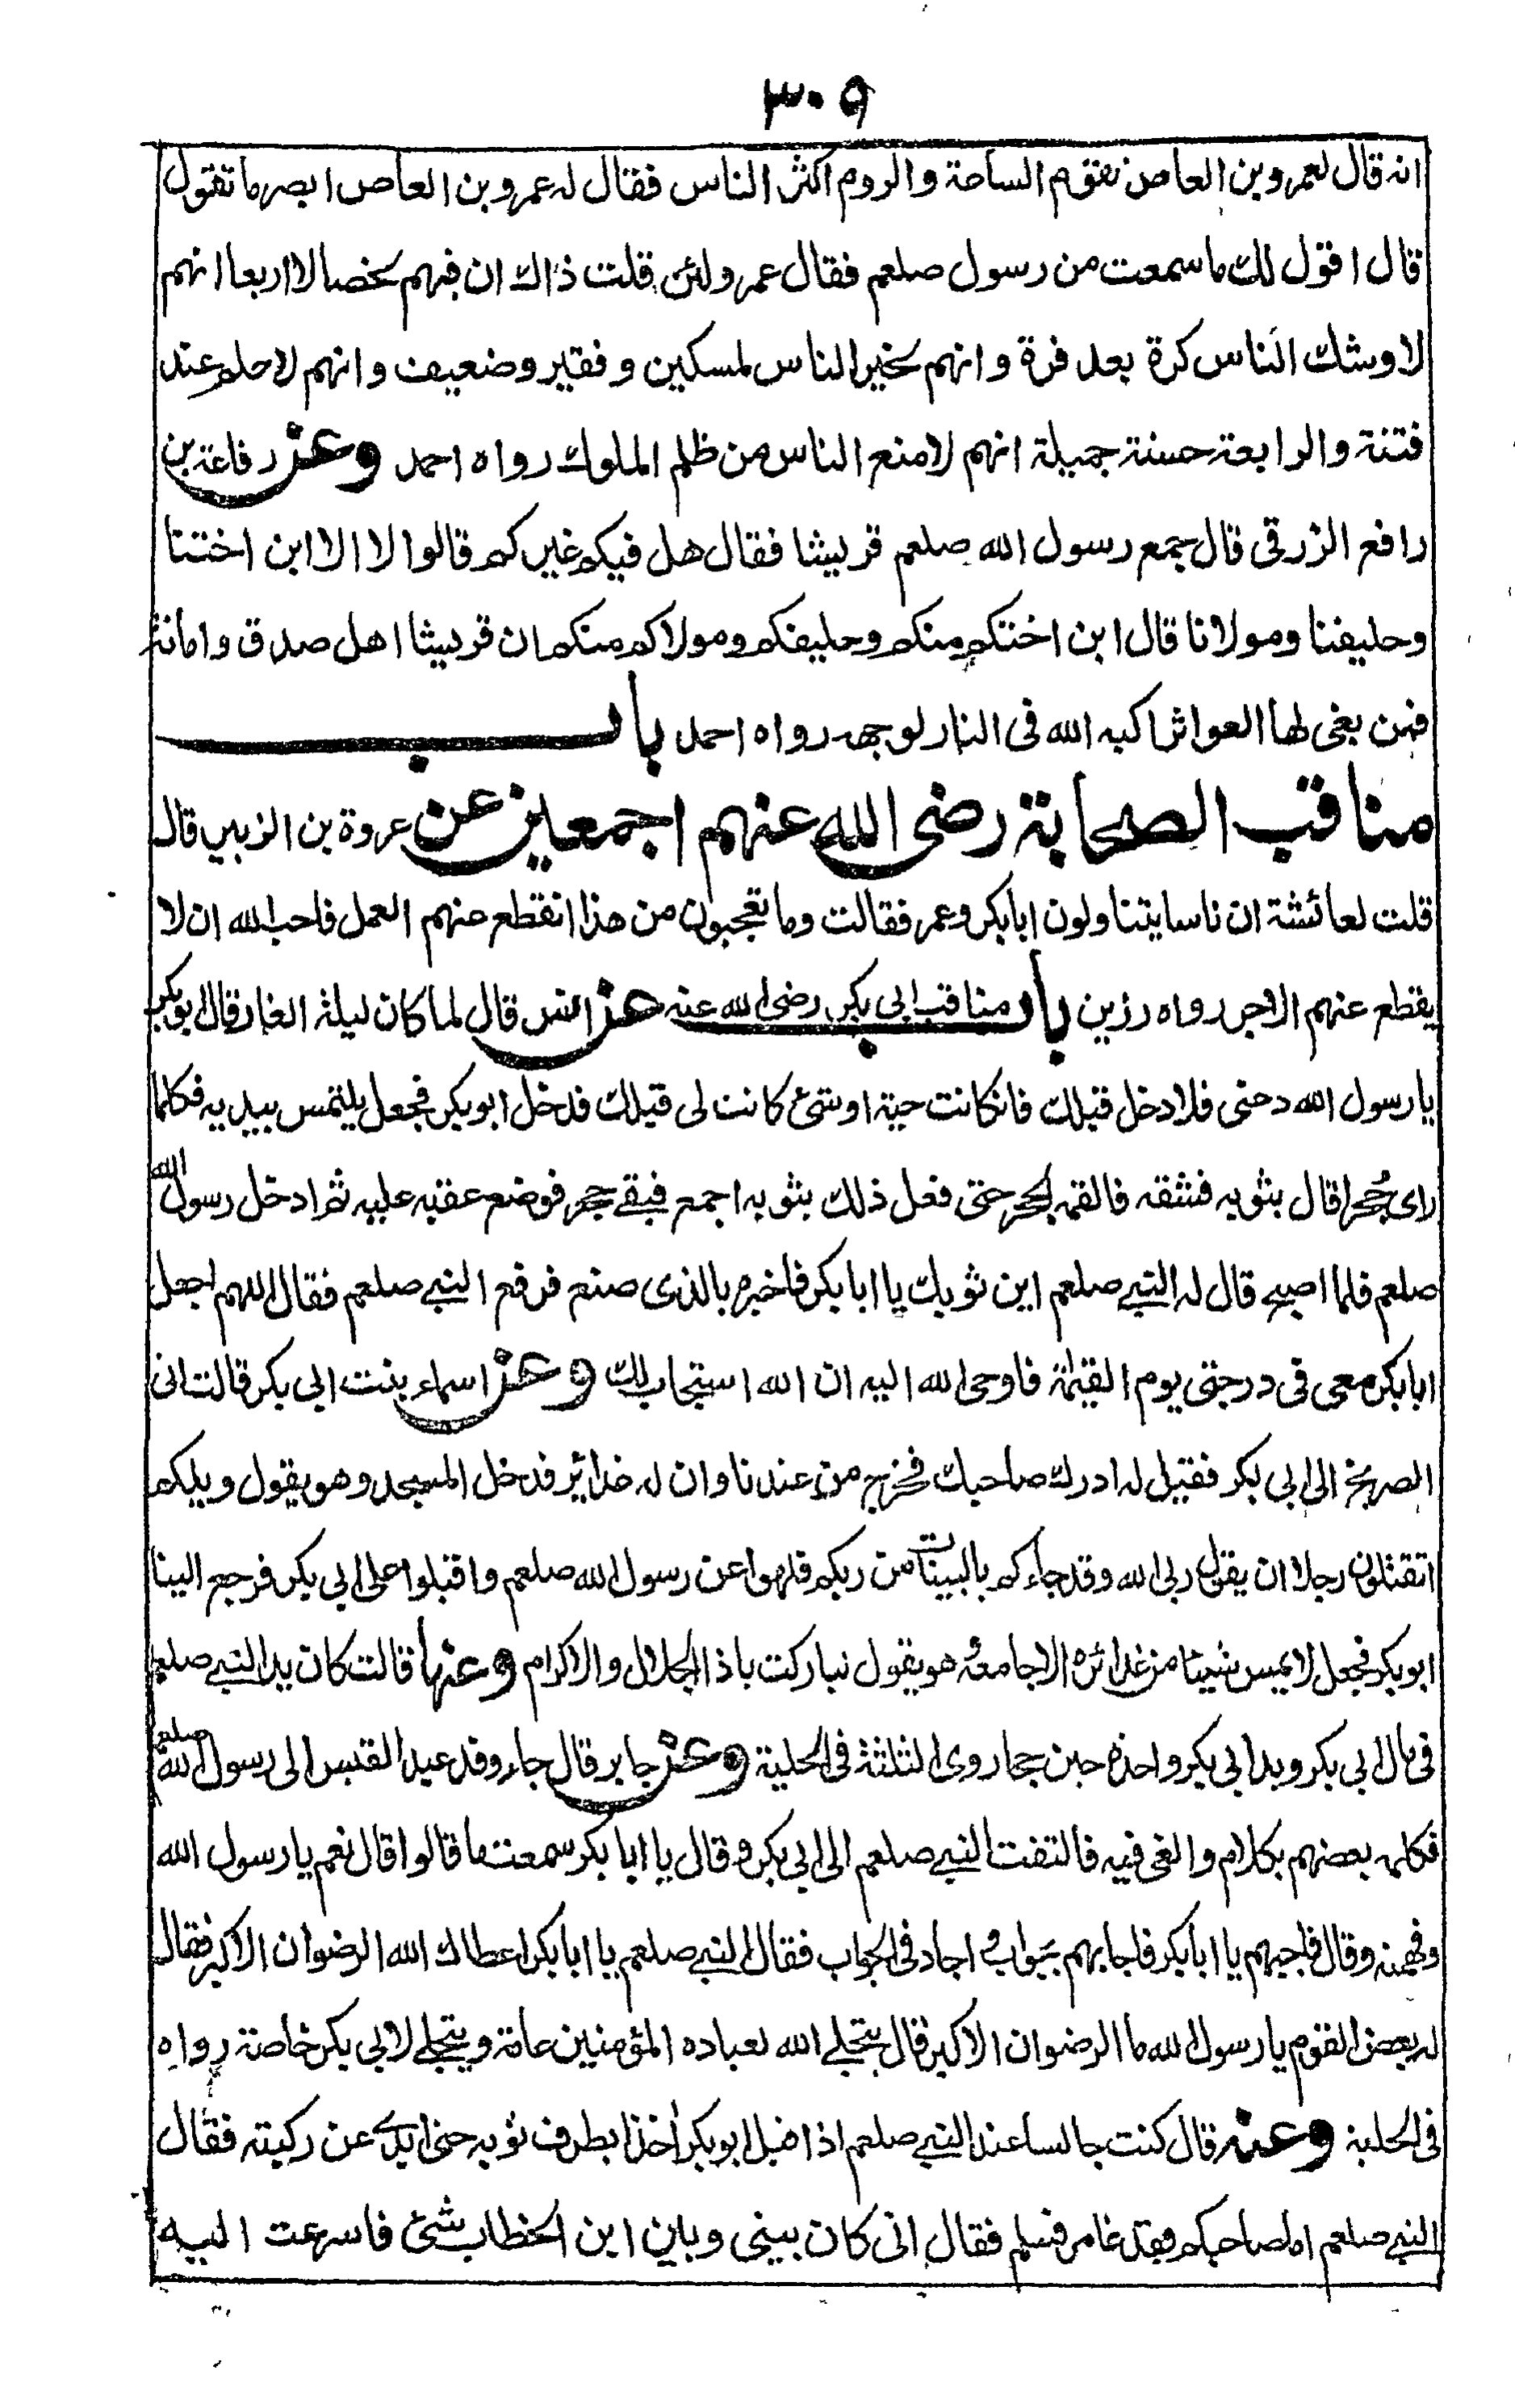 ٣٠٩
انه قال لعمرو بن العاص تقوم الساعة والروم اكثر الناس فقال له عمرو بن العاص ابصر ما تقول
قال اقول لك ما سمعت من رسول صلعم فقال عمرو لئن قلت ذاك ان فيهم لخصالا اربعا انهم
لاوشك الناس كرة بعد فرة وانهم لخير الناس لمسكين وفقير وضعيف وانهم لاحلم عند
فتنة والرابعة حسنة جميلة انهم لامنع الناس من ظلم الملوك رواه احمد وعن رفاعة بن
رافع الزرقى قال جمع رسول الله صلعم قريشا فقال هل فيكم غيركم قالوا لا الا ابن اختنا
وحليفنا ومولانا قال ابن اختكم منكم وحليفكم ومولاكم منكم ان قريشا اهل صدق وامانة
فمن بغى لها العواثر اكبه الله فى النار لوجهه رواه احمد باب
مناقب الصحابة رضى الله عنهم اجمعين عن عروة بن الزبير قال
قلت لعائشة ان ناسا يتناولون ابابكر وعمر فقالت وما تعجبون من هذا انقطع عنهم العمل فاحب الله ان لا
يقطع عنهم الاجر رواه رزين باب مناقب ابى بكر رضى الله عنه عن انس قال لما كان ليلة الغار قال ابوبكر
يا رسول الله دعنى فلادخل قبلك فان كانت حية او شئ كانت لى قبلك فدخل ابوبكر فجعل يلتمس بيديه فكلما
راى جُحرا قال بثوبه فشقه فالقمه الجحر حتى فعل ذلك بثوبه اجمع فبقى جحر فوضع عقبه عليه ثم ادخل رسول الله
صلعم فلما اصبح قال له النبى صلعم اين ثوبك يا ابابكر فاخبره بالذى صنع فرفع النبى صلعم فقال اللهم اجعل
ابابكر معى فى درجتى يوم القيٰمة فاوحى الله اليه ان الله استجاب لك وعن اسماء بنت ابى بكر قالت اتى
الصريخ الى ابى بكر فقيل له ادرك صاحبك فخرج من عندنا وان له غدائر فدخل المسجد وهو يقول ويلكم
اتقتلون رجلا ان يقول ربى الله وقد جاءكم بالبينات من ربكم فلهوا عن رسول الله صلعم واقبلوا على ابى بكر فرجع الينا
ابوبكر فجعل لا يمس شيئا من غدائره الا جا معه وهو يقول تباركت يا ذا الجلال والاكرام وعنها قالت كان يد النبى صلعم
فى مال ابى بكر ويد ابى بكر واحدة حين حجا روى الثلثة فى الحلية وعن جابر قال جاء وفد عبد القيس الى رسول الله صلعم
فكلمه بعضهم بكلام والغى فيه فالتفت النبى صلعم الى ابى بكر وقال يا ابابكر سمعت ما قالوا قال نعم يا رسول الله
وفهمته وقال فاجبهم يا ابابكر فاجابهم بجواب واجاد فى الجواب فقال النبى صلعم يا ابابكر اعطاك الله الرضوان الاكبر فقال
له بعض القوم يا رسول الله ما الرضوان الاكبر قال يتجلى الله لعباده المؤمنين عامة ويتجلى لابى بكر خاصة رواه
فى الحلية وعنه قال كنت جالسا عند النبى صلعم اذ اقبل ابوبكر اخذا بطرف ثوبه حتى ابدى عن ركبته فقال
النبى صلعم اما صاحبكم فقد غامر فسلم فقال انى كان بينى وبين ابن الخطاب شئ فاسرعت اليه